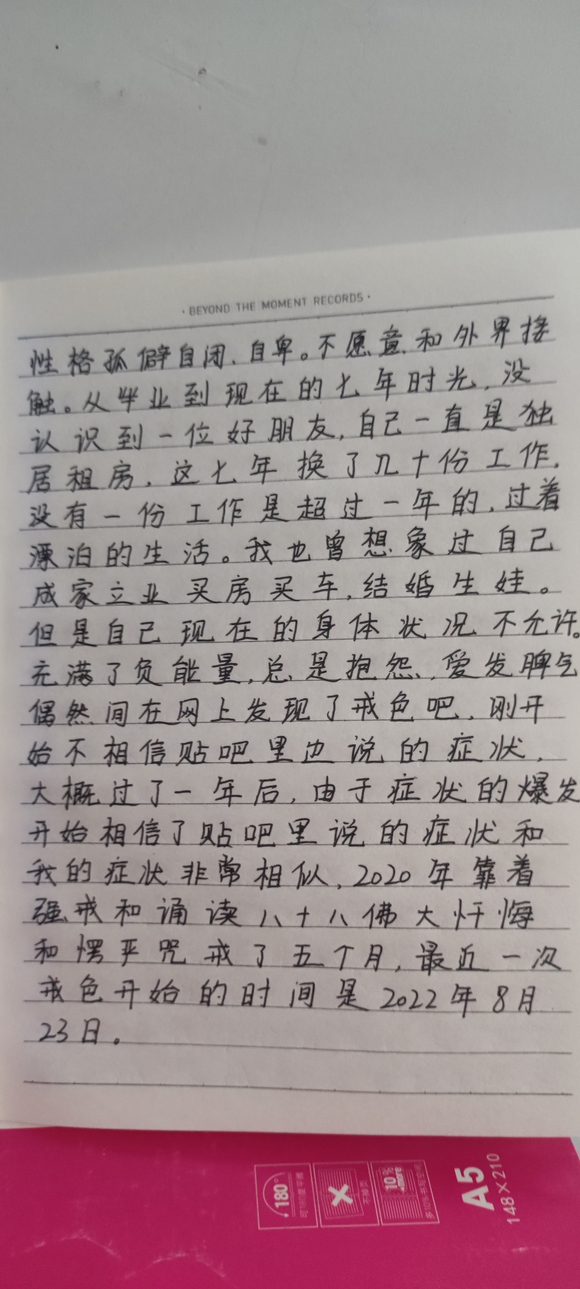 · BEYOND THE MOMENT RECORDS ·
性格孤僻自闭、自卑。不愿意和外界接
触。从毕业到现在的七年时光，没
认识到一位好朋友，自己一直是独
居租房，这七年换了几十份工作，
没有一份工作是超过一年的，过着
漂泊的生活。我也曾想象过自己
成家立业买房买车，结婚生娃。
但是自己现在的身体状况不允许。
充满了负能量，总是抱怨，爱发脾气
偶然间在网上发现了戒色吧，刚开
始不相信贴吧里边说的症状，
大概过了一年后，由于症状的爆发
开始相信了贴吧里说的症状和
我的症状非常相似，2020年靠着
强戒和诵读八十八佛大忏悔
和愣严咒戒了五个月，最近一次
戒色开始的时间是2022年8月
23日。
180°
10%
more
A5
148×210